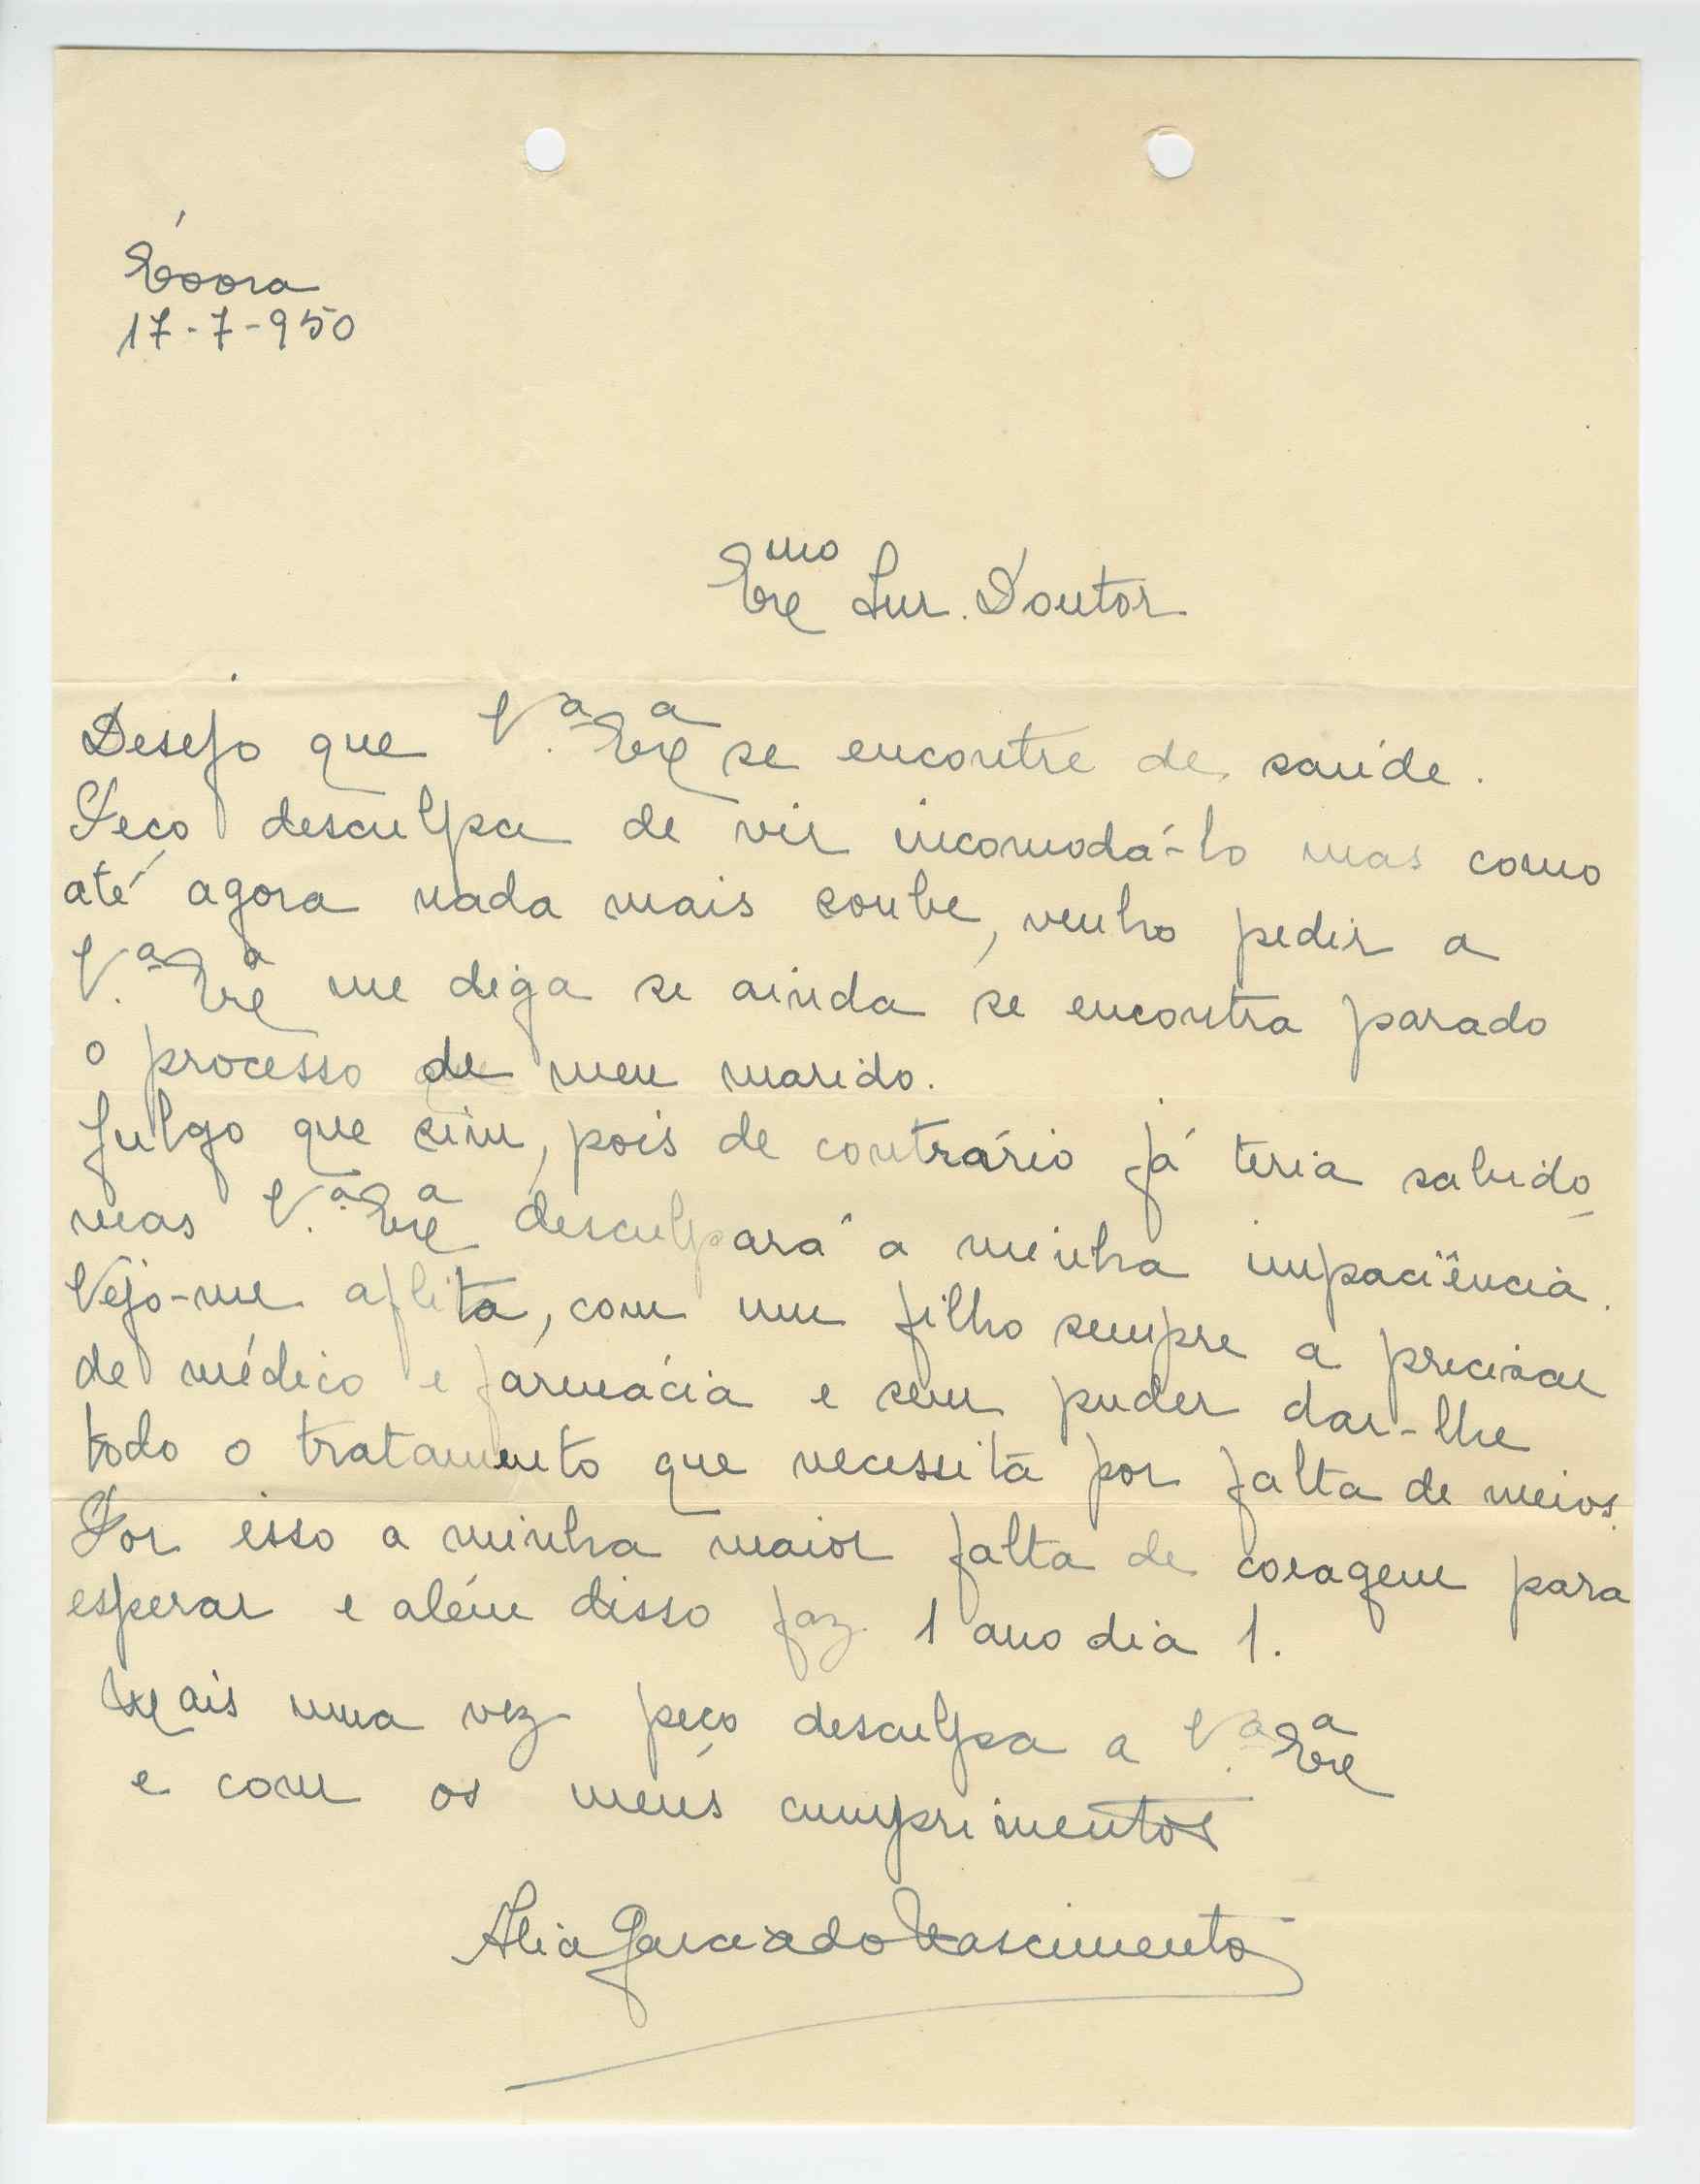 Évora
17-7-950
Exmo Snr. Doutor
Desejo que V.ª Exª se encontre de saúde.
Peço desculpa de vir incomodá-lo mas como
até agora nada mais soube, venho pedir a
V.ª Exª me diga se ainda se encontra parado
o processo de meu marido.
Julgo que sim, pois de contrário já teria sabido
mas V.ª Exª desculpará a minha impaciência.
Vejo-me aflita, com um filho sempre a precisar
de médico e fármácia e sem puder dar-lhe
todo o tratamento que necessita por falta de meios.
Por isso a minha maior falta de coragem para
esperar e além disso faz 1 ano dia 1.
Mais uma vez peço desculpa a V.ª Exª
e com os meus cumprimentos
Garcia do Nascimento